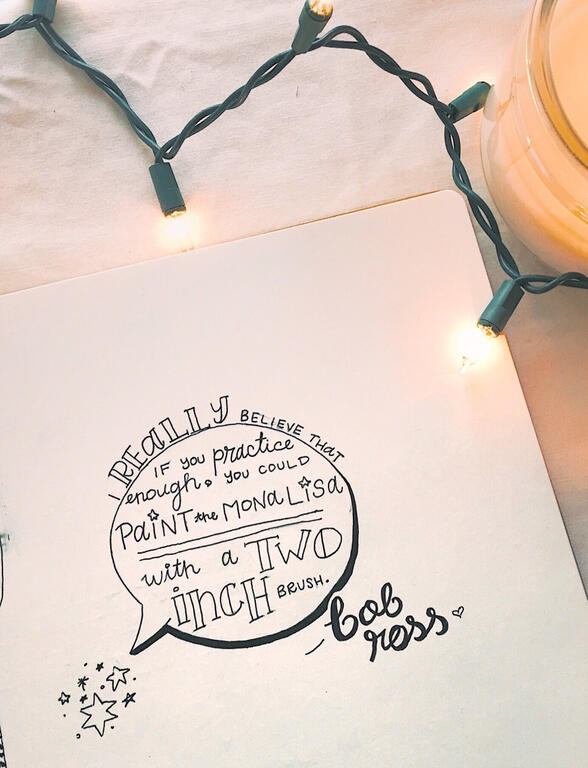 I REALLY BELIEVE THAT
IF you practice
enough, you COULD
PAINT the MONA LISA
with a TWO
inCH BRUSH.
— bob
ross